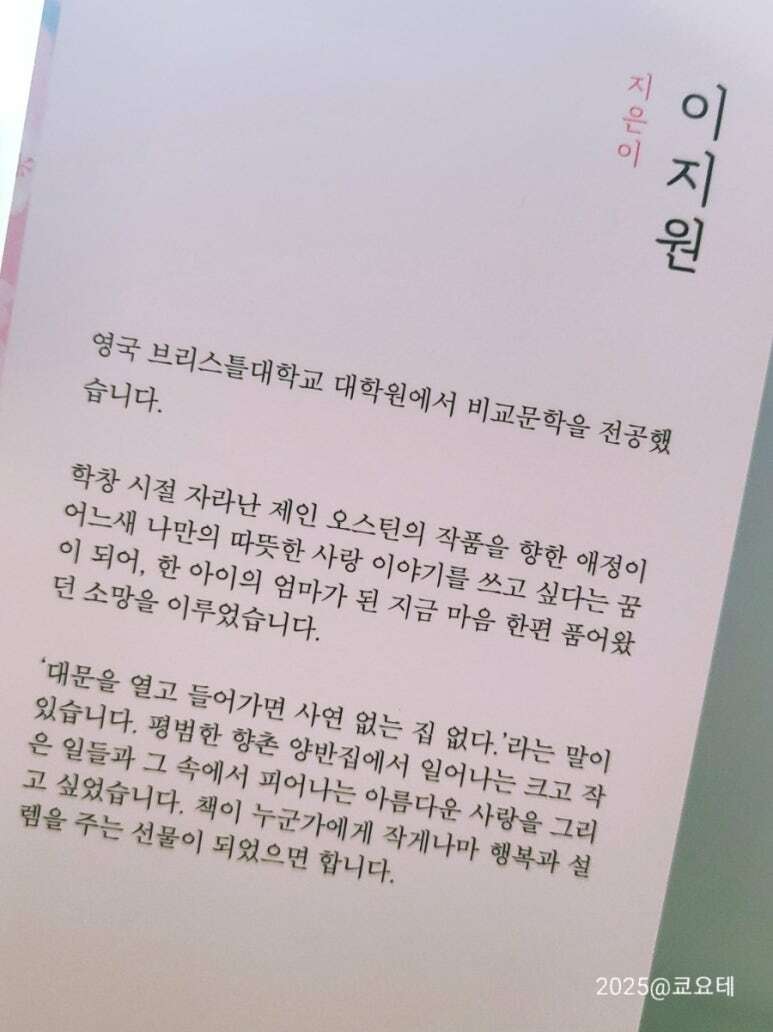 이지원
지은이
영국 브리스틀대학교 대학원에서 비교문학을 전공했
습니다.
학창 시절 자라난 제인 오스틴의 작품을 향한 애정이
어느새 나만의 따뜻한 사랑 이야기를 쓰고 싶다는 꿈
이 되어, 한 아이의 엄마가 된 지금 마음 한편 품어왔
던 소망을 이루었습니다.
‘대문을 열고 들어가면 사연 없는 집 없다.’라는 말이
있습니다. 평범한 향촌 양반집에서 일어나는 크고 작
은 일들과 그 속에서 피어나는 아름다운 사랑을 그리
고 싶었습니다. 책이 누군가에게 작게나마 행복과 설
렘을 주는 선물이 되었으면 합니다.
2025@쿄요테